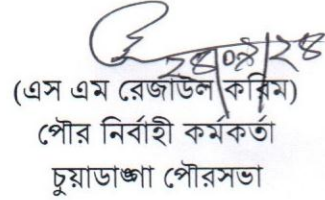 (এস এম রেজাউল করিম)
পৌর নির্বাহী কর্মকর্তা
চুয়াডাঙ্গা পৌরসভা